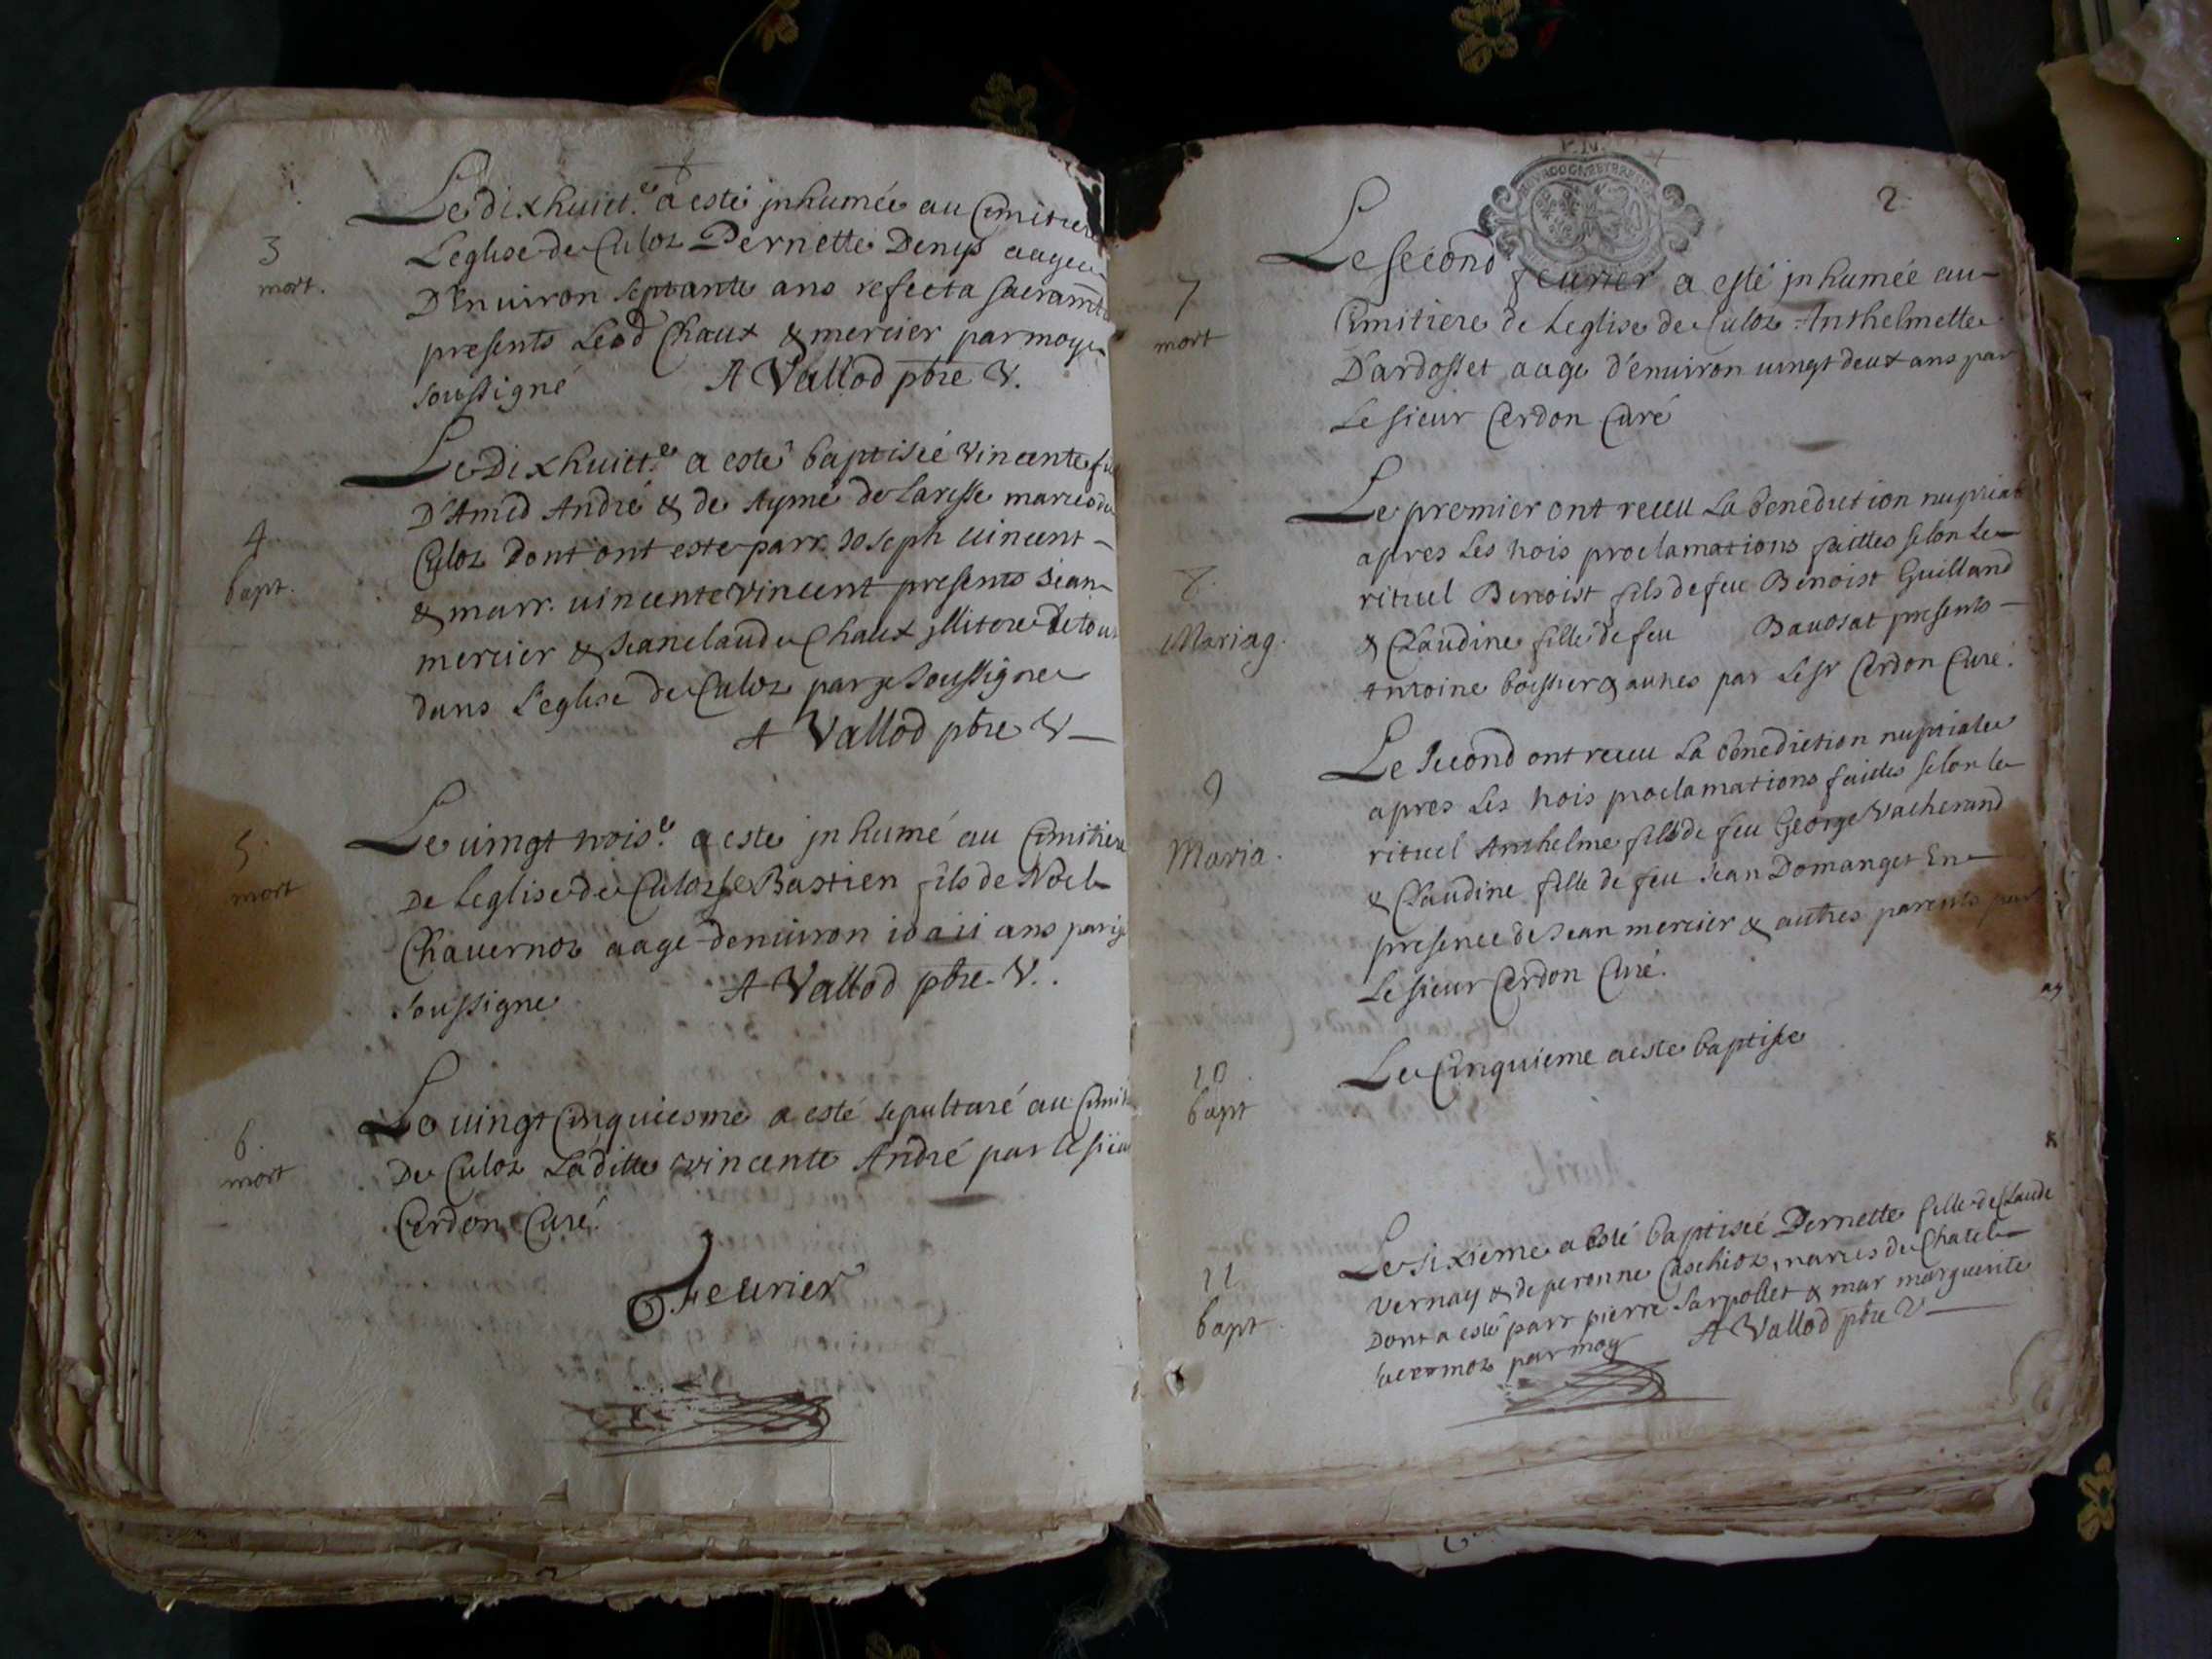 3
mort.
Le dixhuict.e a esté jnhumée au Cimitiere
Leglise de Culoz Pernette Denys aagee
D'Enuiron septante ans refecta sacramtis
presents Led Chaux & mercier par moye
soussigné A Vallod pbre V.
4
bapt.
Le Dixhuict.e a esté baptisée Vincente
D'Amed André & de Ayme de Larisse maries de
Culoz Dont ont este parr. Joseph uincent
& marr. uincente Vincent presents Jean
mercier & Jeanclaude Chaux jllitere de tou
dans L'eglise de Culoz par je soussigne
A Vallod pbre V
5.
mort
Le uingt trois.e a este jnhumé au Cimitiere
De Leglise de Culoz Bastien fils de Noel
Chauernoz aage denuiron 10 a 11 ans par je
soussigne A Vallod pbre. V.
6.
mort
Le uingt Cinquiesme a esté sepulturé au Cimit
De Culoz Laditte vincente André par le sieu
Cerdon Curé.
Feurier
2
7
mort
Le second feurier a esté jnhumée au
Cimitiere de Leglise de Culoz Anthelmette
D'ardosset aage d'enuiron uingt deux ans par
Le sieur Cerdon Curé
8.
Mariag.
Le premier ont receu La benediction nuptial
apres Les trois proclamations faittes selon Le
rituel Benoist fils de feu Benoist Guilland
& Claudine fille de feu Bauosat presents
Antoine boissier & autres par Le sr Cerdon Curé.
9
Maria.
Le second ont receu La benediction nuptiale
apres Les trois proclamations faittes selon le
rituel Anthelme fils de feu George Vacherand
& Claudine fille de feu Jean Domanget En
presence de Jean mercier & autres parents par
Le sieur Cerdon Curé.
10
bapt
Le Cinquieme a este baptise
11
bapt.
Le sixieme a esté baptisée Pernette fille de Claude
Vernay & de peronne Caschioz, maries de Chatel
Dont a esté parr pierre Sarpollet & mar marguerite
par moy A Vallod pbre V